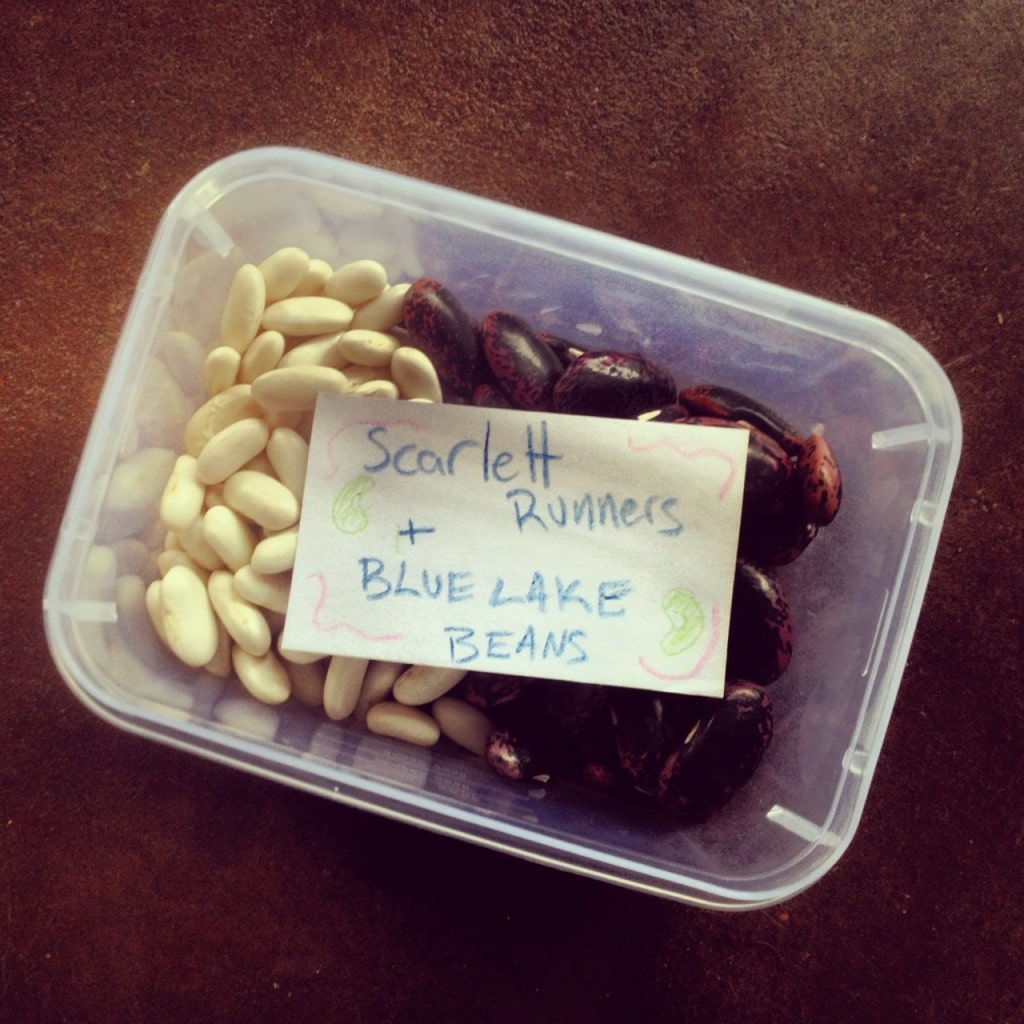 Scarlett
Runners
+
BLUE LAKE
BEANS